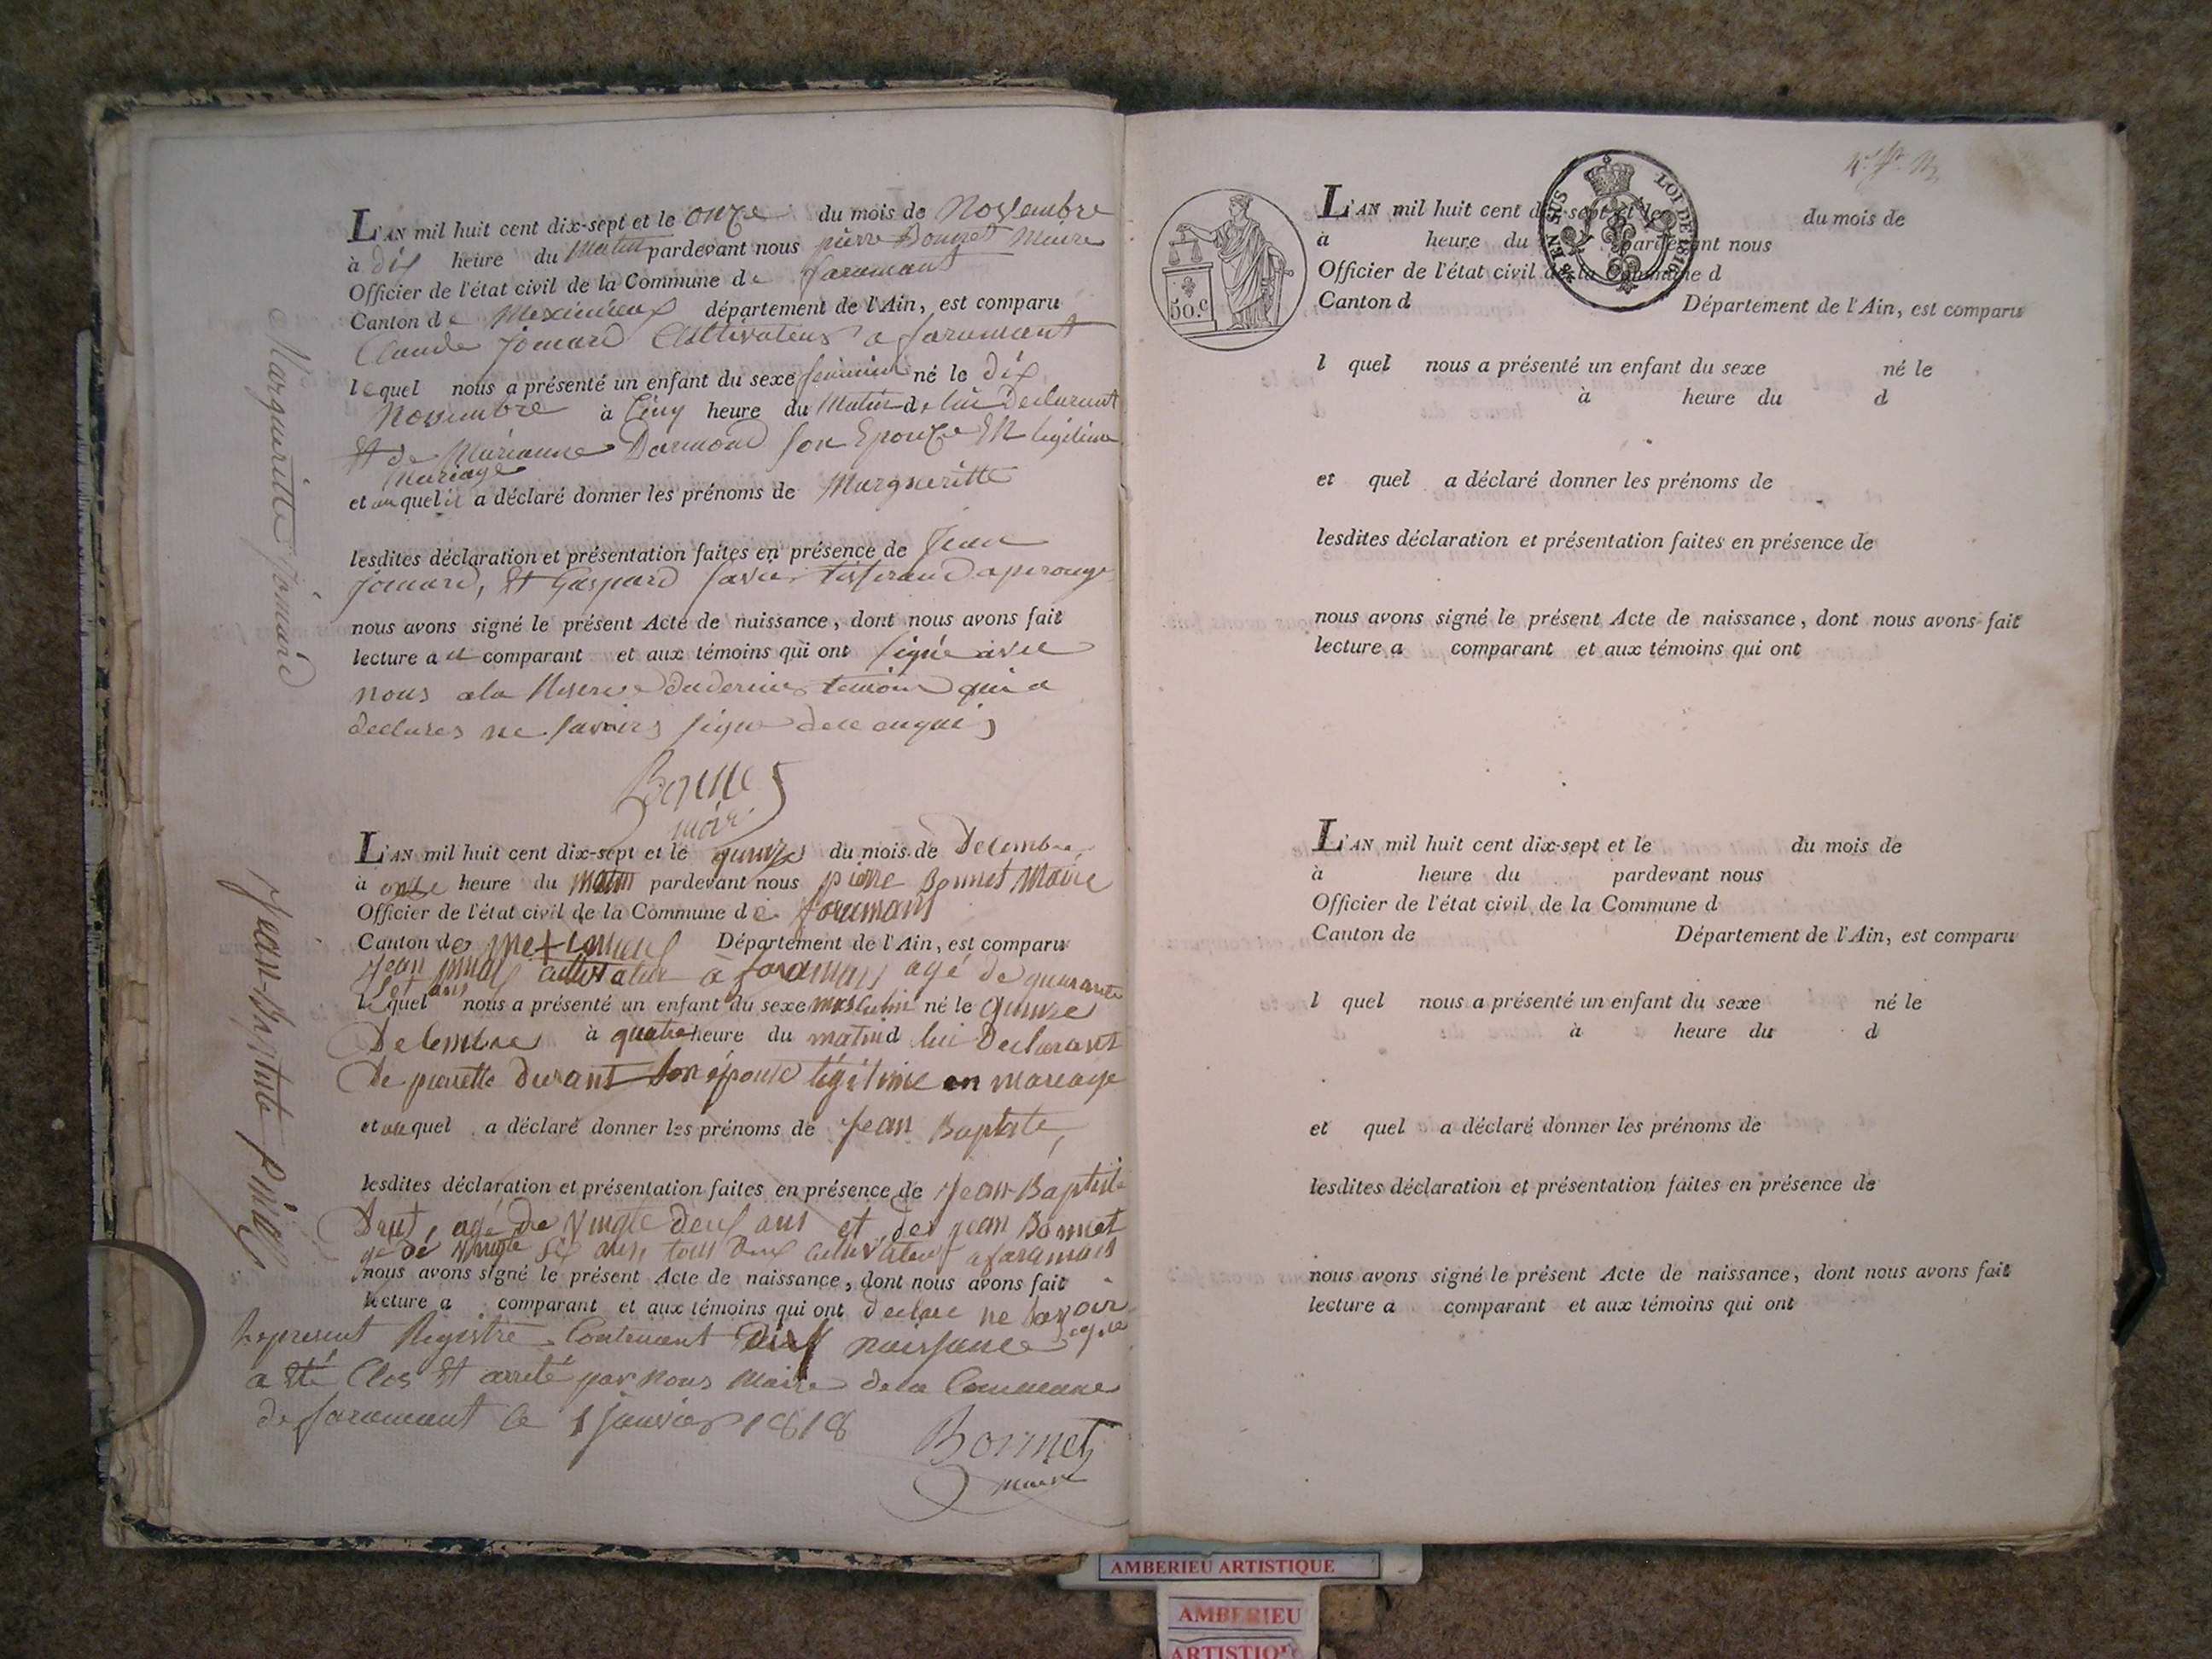 L'AN mil huit cent dix-sept et le onze du mois de Novembre
à dix heure du Matin pardevant nous pierre Bonnet Maire
Officier de l'état civil de la Commune de faramant
Canton de Meximieux département de l'Ain, est comparu
Claude Jomard Cultivateur a faramant
lequel nous a présenté un enfant du sexe feminin né le dix
Novembre à Cinq heure du Matin de lui declarant
Et de Marianne Darmond son Epouze EN legitime
Mariage
et auquel il a déclaré donner les prénoms de Margueritte
lesdites déclaration et présentation faites en présence de Jean
Jomard, Et Gaspard tisserand a perouge
nous avons signé le présent Acte de naissance, dont nous avons fait
lecture a comparant et aux témoins qui ont signé avec
nous ala Reserve du dernier temoin qui a
declarer ne savoir signer de ce enquis
Bonnet
maire
Margueritte Jomard
L'AN mil huit cent dix-sept et le quinze du mois de Decembre
à onze heure du matin pardevant nous pierre Bonnet Maire
Officier de l'état civil de la Commune de faramans
Canton de meximieux Département de l'Ain, est comparu
Jean cultivateur à faramans agé de quarante
sept ans
lequel nous a présenté un enfant du sexe masculin né le quinze
Decembre à quatre heure du matin d lui Declarant
De pierrette durant son épouse légitime en mareage
et auquel a déclaré donner les prénoms de Jean Baptiste,
lesdites déclaration et présentation faites en présence de Jean-Baptiste
agé De vingte deux ans et de jean Bonnet
gé de vingte six ans tous deux cultivateur a faramans
nous avons signé le présent Acte de naissance, dont nous avons fait
lecture a comparant et aux témoins qui ont declaré ne savoir
signé
Jean-Baptiste
Le present Registre Contenant naissance
a Eté Clos Et arreté par Nous Maire de la Commune
de faramant le 1 janvier 1818
Bonnet
maire
50.c
EN SUS
LOI DE 1816
L'AN mil huit cent dix-sept et le du mois de
à heure du pardevant nous
Officier de l'état civil de la Commune d
Canton d Département de l'Ain, est comparu
l quel nous a présenté un enfant du sexe né le
à heure du d
et quel a déclaré donner les prénoms de
lesdites déclaration et présentation faites en présence de
nous avons signé le présent Acte de naissance, dont nous avons fait
lecture a comparant et aux témoins qui ont
L'AN mil huit cent dix-sept et le du mois de
à heure du pardevant nous
Officier de l'état civil de la Commune d
Canton de Département de l'Ain, est comparu
l quel nous a présenté un enfant du sexe né le
à heure du d
et quel a déclaré donner les prénoms de
lesdites déclaration et présentation faites en présence de
nous avons signé le présent Acte de naissance, dont nous avons fait
lecture a comparant et aux témoins qui ont
AMBERIEU ARTISTIQUE
AMBERIEU